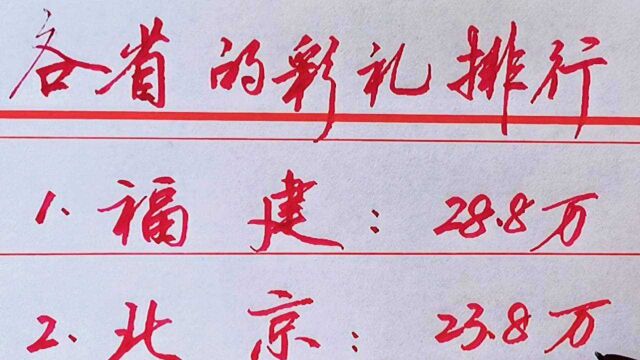 各省的彩礼排行
1.福建：28.8万
2.北京：23.8万